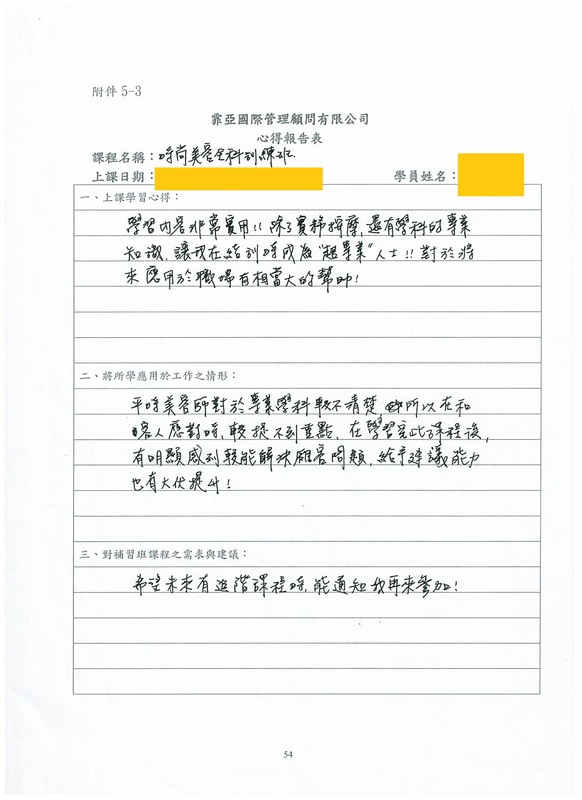 附件 5-3
霏亞國際管理顧問有限公司
心得報告表
課程名稱：時尚美容全科訓練班.
上課日期：
學員姓名：
一、上課學習心得：
學習內容非常實用!! 除了實務按摩，還有學科的專業
知識，讓我在結訓時成為"超專業"人士!! 對於將
來應用於職場有相當大的幫助!
二、將所學應用於工作之情形：
平時美容師對於專業學科較不清楚，所以在和
客人應對時，較提不到重點，在學習完此課程後，
有明顯感到較能解決顧客問題，給予建議能力
也有大伏提升!
三、對補習班課程之需求與建議：
希望未來有進階課程時，能通知我再來參加!
54